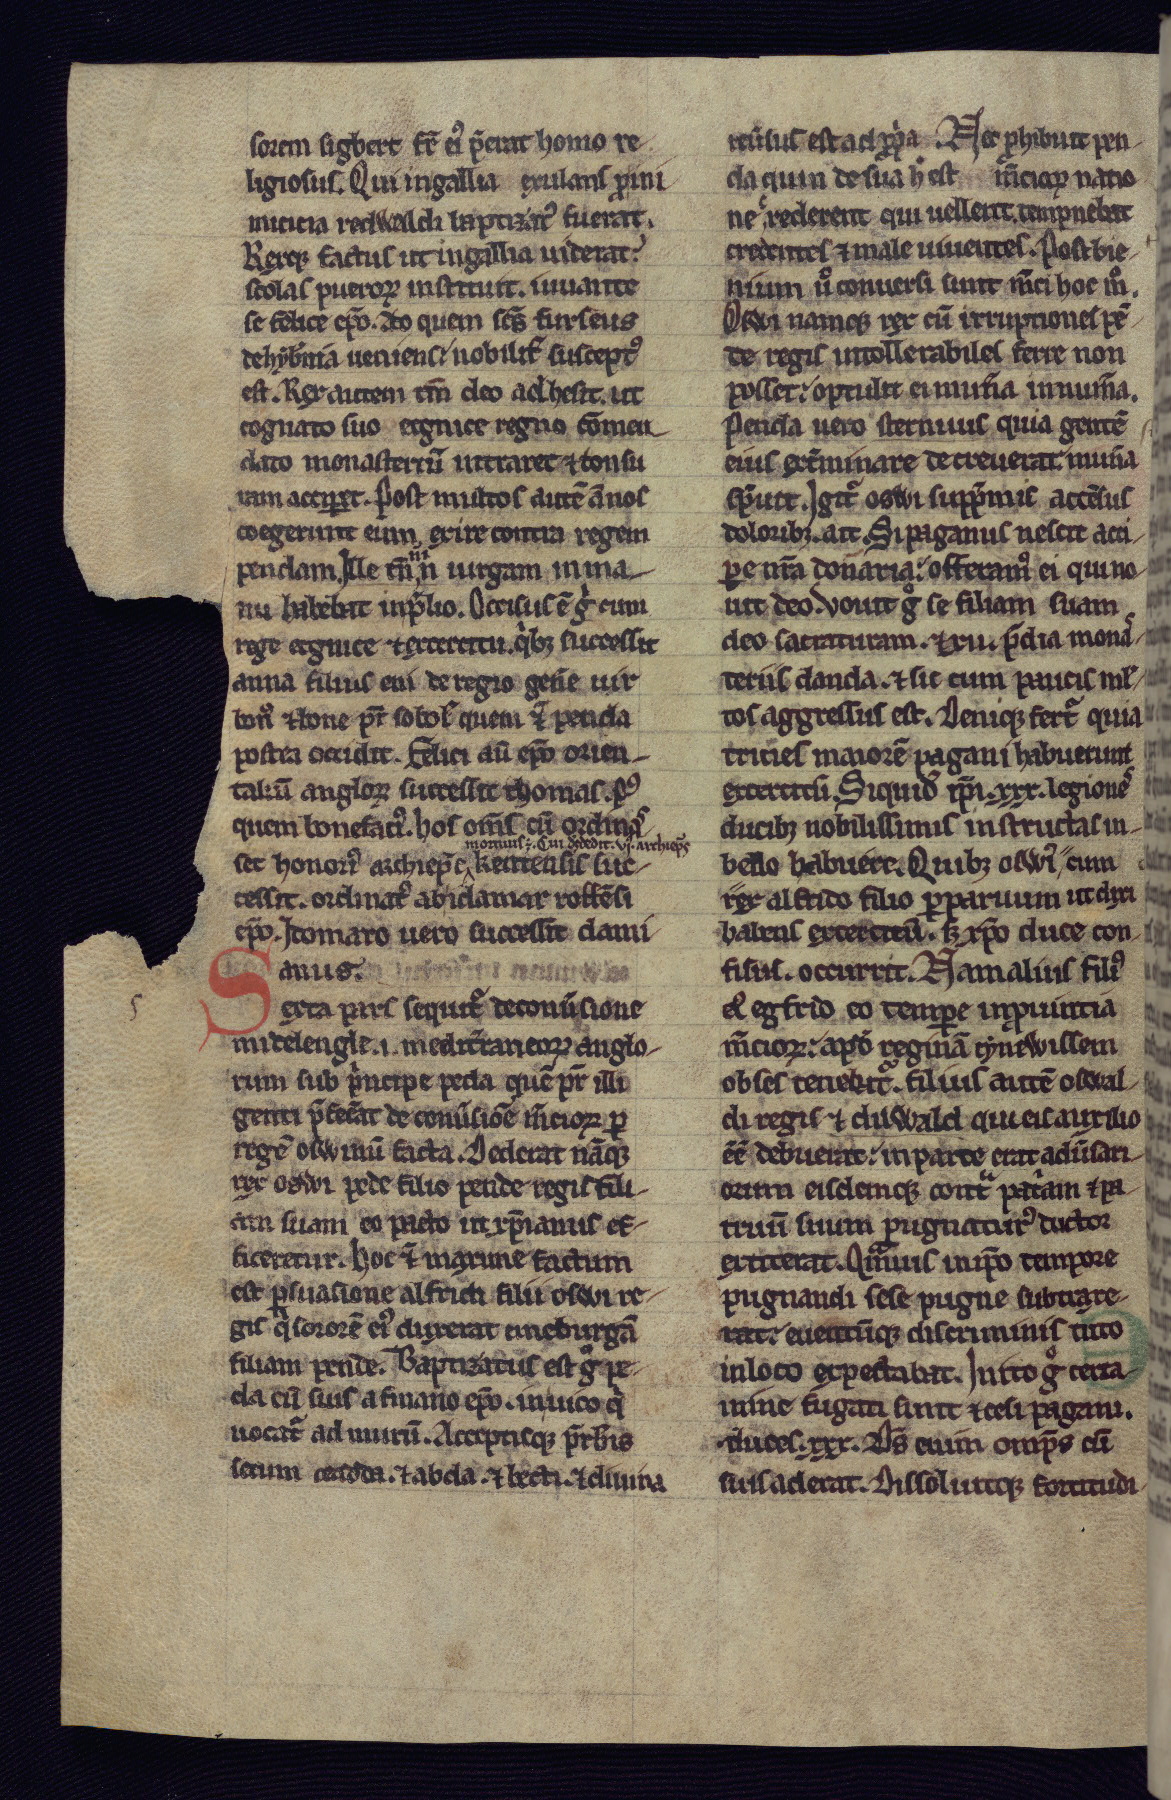 sorem sigbert fr̄ ei᷒ p̄erat homo re-
ligiosus. Qui in gallia exulans p̄ ini
micicia redwaldi baptizat᷒ fuerat.
Rexqꝫ factus ut in gallia uiderat:
scolas pueroꝝ instituit. iuuante
se felice ep̄o. Ad quem sc̄s furseus
de hyb̄nia ueniens: nobilit̄ suscept᷒
est. Rex autem tm̄ deo adhesit. ut
cognato suo ecgrice regno com̄en-
dato monasteriū intraret ⁊ tonsu
ram accip̄et. Post multos autē ānos
coegerunt eum exire contra regem
pendam. Ille tn̄ n̄ uirgam in ma-
nu habebat in p̄lio. Occisus ē g̊ cum
rege ecgrice ⁊ exercitu. q̇bꝫ successit
anna filius eni de regio gen̄e uir
bon᷒ ⁊ bone pr̄ sobol̄ quem ⁊ penda
postea occidit. Felici au̅ ep̄o orien-
taliū angloꝝ successit thomas. p᷒
quem bonefaci᷒. hos om̄s cū ordinas
set honori᷒ archiep̄c, kentensis suc-
mortuus ē. Cui dededit. vi. archiep̄s
cessit. ordinat᷒ ab idamar roffēsi
ep̄o. Itomaro uero successit dami
anus.
Sexta pars sequit̄ de conūsione
midelengle .i. medit̄raneoꝝ anglo-
rum sub p̄ncipe peda quē pr̄ illi
genti p̄fec̄at de conūsiōe m̄cioꝝ p̄
regē oswinū facta. Dederat nāqꝫ
rex oswi pede filio pende regis fili-
am suam eo pacto ut xp̄ianus ef-
ficeretur. hoc ⁊ maxime factum
est p̄suasione alfridi filii oswi re-
gis q̇ sororē ei᷒ duxerat cineburgā
filiam pende. Baptizatus est g̊ pe-
da cū suis a finano ep̄o. in uico q̇
uocat̄ ad murū. Acceptisqꝫ p̄sb̄is
secum cedda. ⁊ adda. ⁊ becti. ⁊ diuina
reūsus est ad pp̄a. Nec phibuit pen
da quin de sua h᷒ est m̄cioꝝ natio
ne c̄rederent qui uellent. tempnebat
credentes ⁊ male uiuentes. Post bie-
nium u̅o conuersi sunt m̄ci hoc m̊.
Oswi namqꝫ rex cū irruptiones pē-
de regis intollerabiles ferre non
posset: optulit ei mun̄a innum̄a.
Penda uero sternuus quia gentē
eius ext̄minare decreuerat. mun̄a
sp̄uit. Igit̄ oswi supp̄mis accēsus
doloribꝫ. ait. Si paganus nescit acci-
pe nr̄a donaria: offeram᷒ ei qui no-
uit deo. Vouit g̊ se filiam suam
deo sacraturam. ⁊ xii. p̄dia monas-
teriis danda. ⁊ sic cum paucis mil-
tos aggressus est. Deniqꝫ fert̄ quia
tricies maiorē pagani habuerunt
exercitū. Siquid̄ ip̄i .xxx. legiones
ducibꝫ nobilissimis instructas in-
bello habuere. Quibꝫ oswi᷒ cum
rex alfrido filio pparuum ut dixi
habens exercitū. sꝫ xp̄o duce con
fisus. occurrit. Nam alius fili᷒
ei᷒ egfrid᷒ eo tempe in puintia
m̄cioꝝ: apud reginā cynewissem
obses tenebat̄. filius autē oswal-
di regis ⁊ dilwald qui eis auxilio
ēē debuerat: in parte erat adūsari-
orum eisdemqꝫ cont̄ pat̄am ⁊ pa-
truū suum pugnatur᷒ ductor
extiterat. Quāuis in ip̄o tempore
pugnandi sese pugne subtraxe-
rat: euentūqꝫ discriminis tuto
in loco expectabat. Inito g̊ certa
mine fugati sunt ⁊ cesi pagani.
duces .xxx. Ds̄ enim omp̄s cū
suis aderat. Dissoluitqꝫ fortitudi-